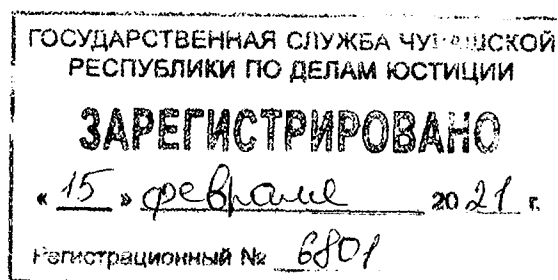 ГОСУДАРСТВЕННАЯ СЛУЖБА ЧУВАШСКОЙ
РЕСПУБЛИКИ ПО ДЕЛАМ ЮСТИЦИИ
ЗАРЕГИСТРИРОВАНО
«15» февраля 2021 г.
Регистрационный № 6801